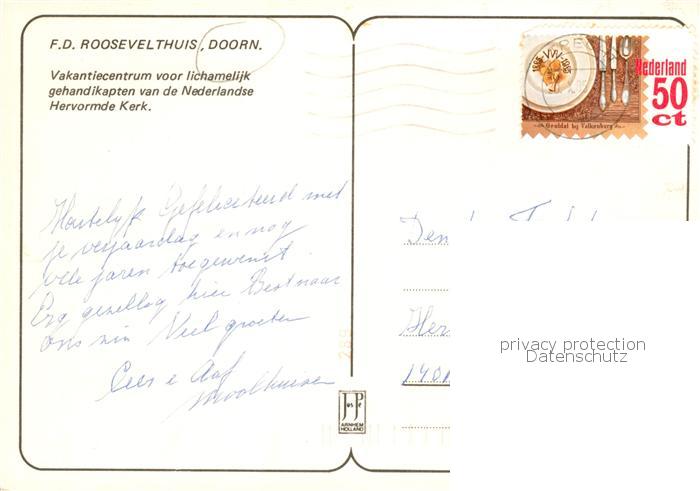 F.D. ROOSEVELTHUIS, DOORN.
Vakantiecentrum voor lichamelijk
gehandikapten van de Nederlandse
Hervormde Kerk.
Hartelijk Gefeliciteerd met
je verjaardag en nog
vele jaren toegewenst.
Erg gezellig hier Best naar
ons zin Veel groeten
Cees e Aaf
Moolhuizen
289
JosPé
ARNHEM
HOLLAND
1885-VVV-1985
Nederland
50
ct
Geuldal bij Valkenburg
Her
1401
privacy protection
Datenschutz